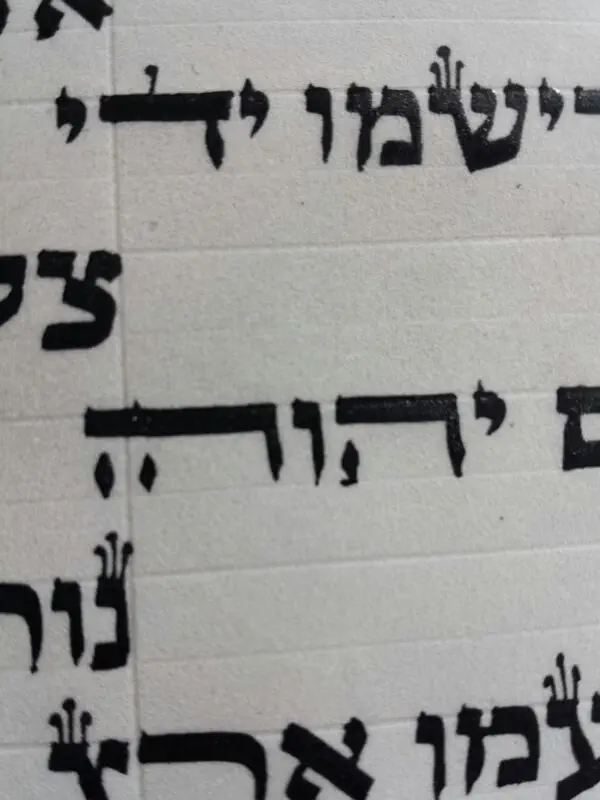 רישמו ידי
צל
ם יהוה
נור
עמו ארץ